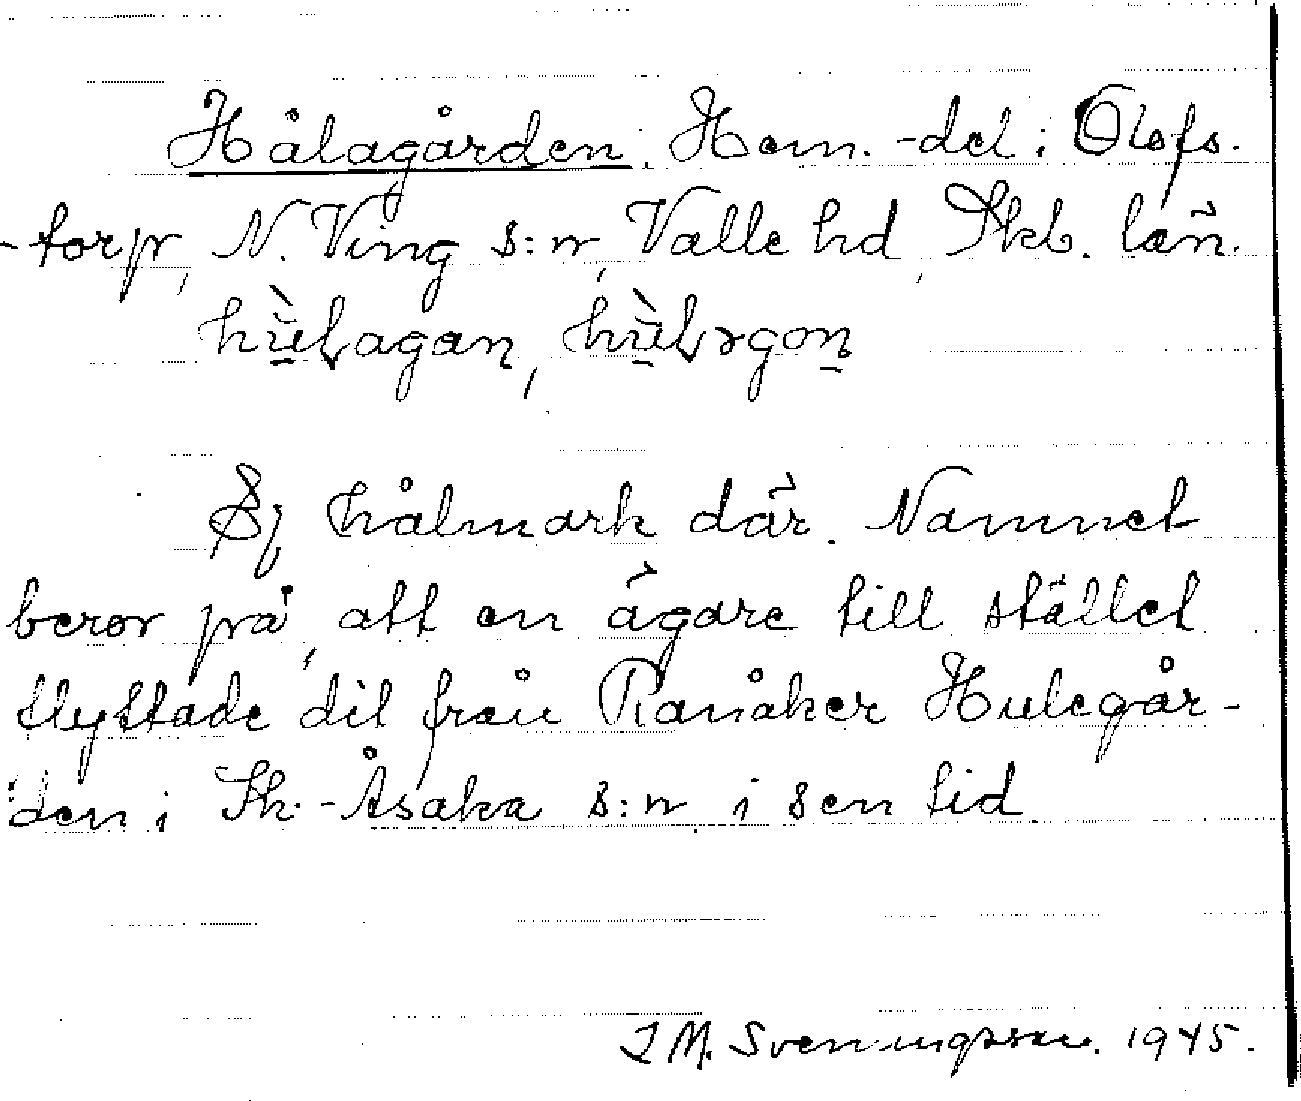 Hålagården. Hem.-del i Olofs-
-torp, N. Ving s:n, Valle hd, Skb. län.
hù̱ɫagan, hù̱ɫəgon̲
Ej hålmark där. Namnet
beror på, att en ägare till stället
flyttade dit från Ranåker Hulegår-
den i Sk.-Åsaka s:n i sen tid.
J M. Sveningsson. 1945.